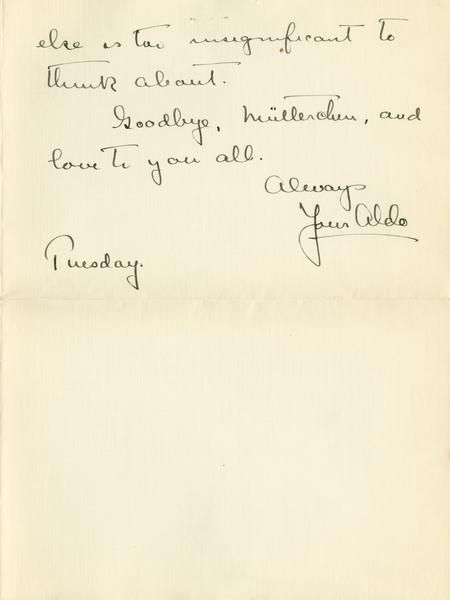 else is too insignificant to
think about.
Goodbye, Mütterchen, and
love to you all.
Always
Your Aldo
Tuesday.